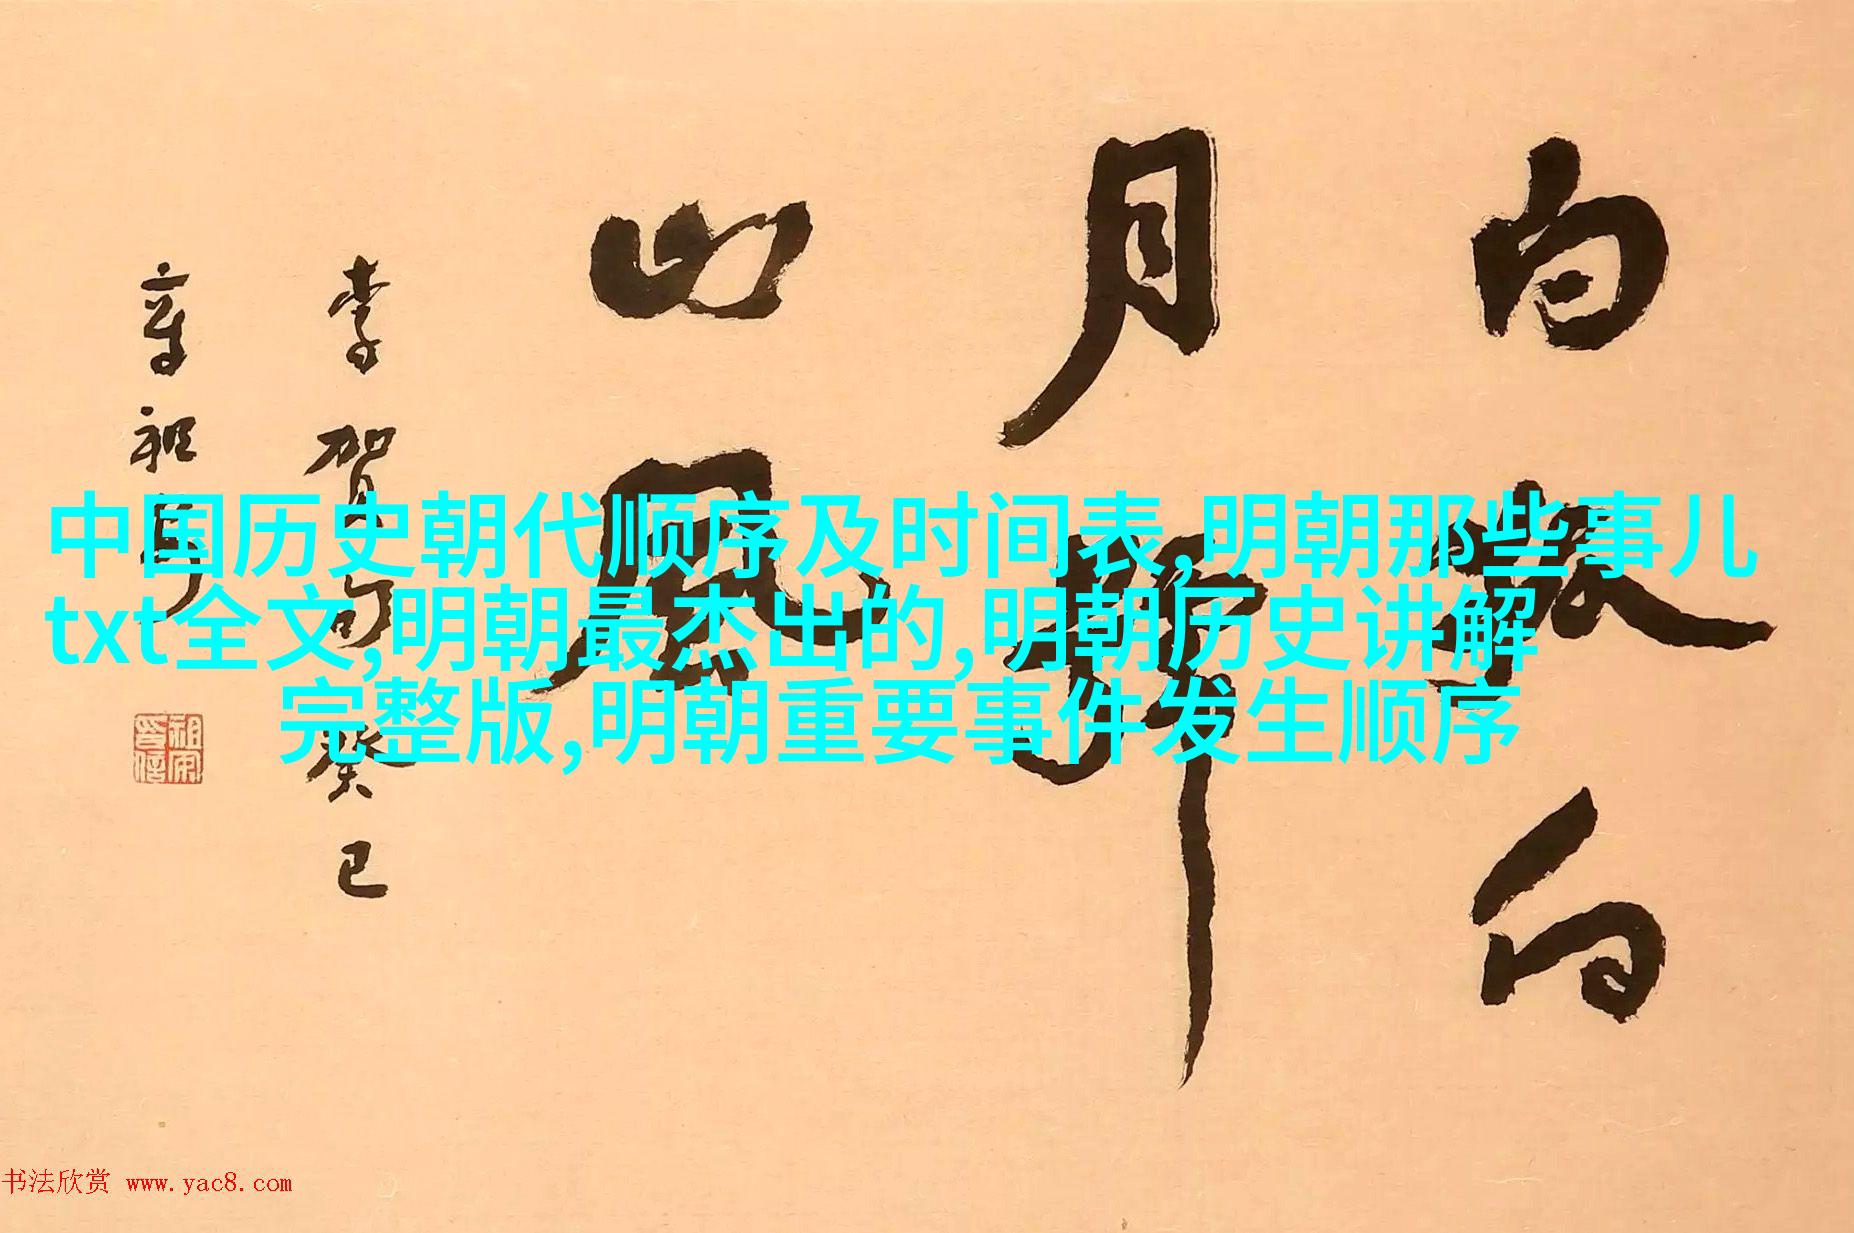 中国历史朝代顺序及时间表,明朝那些事儿
txt全文,明朝最杰出的,明朝历史讲解
完整版,明朝重要事件发生顺序
月
山風
李賀句癸巳
章祖安
书法欣赏 www.yac8.com